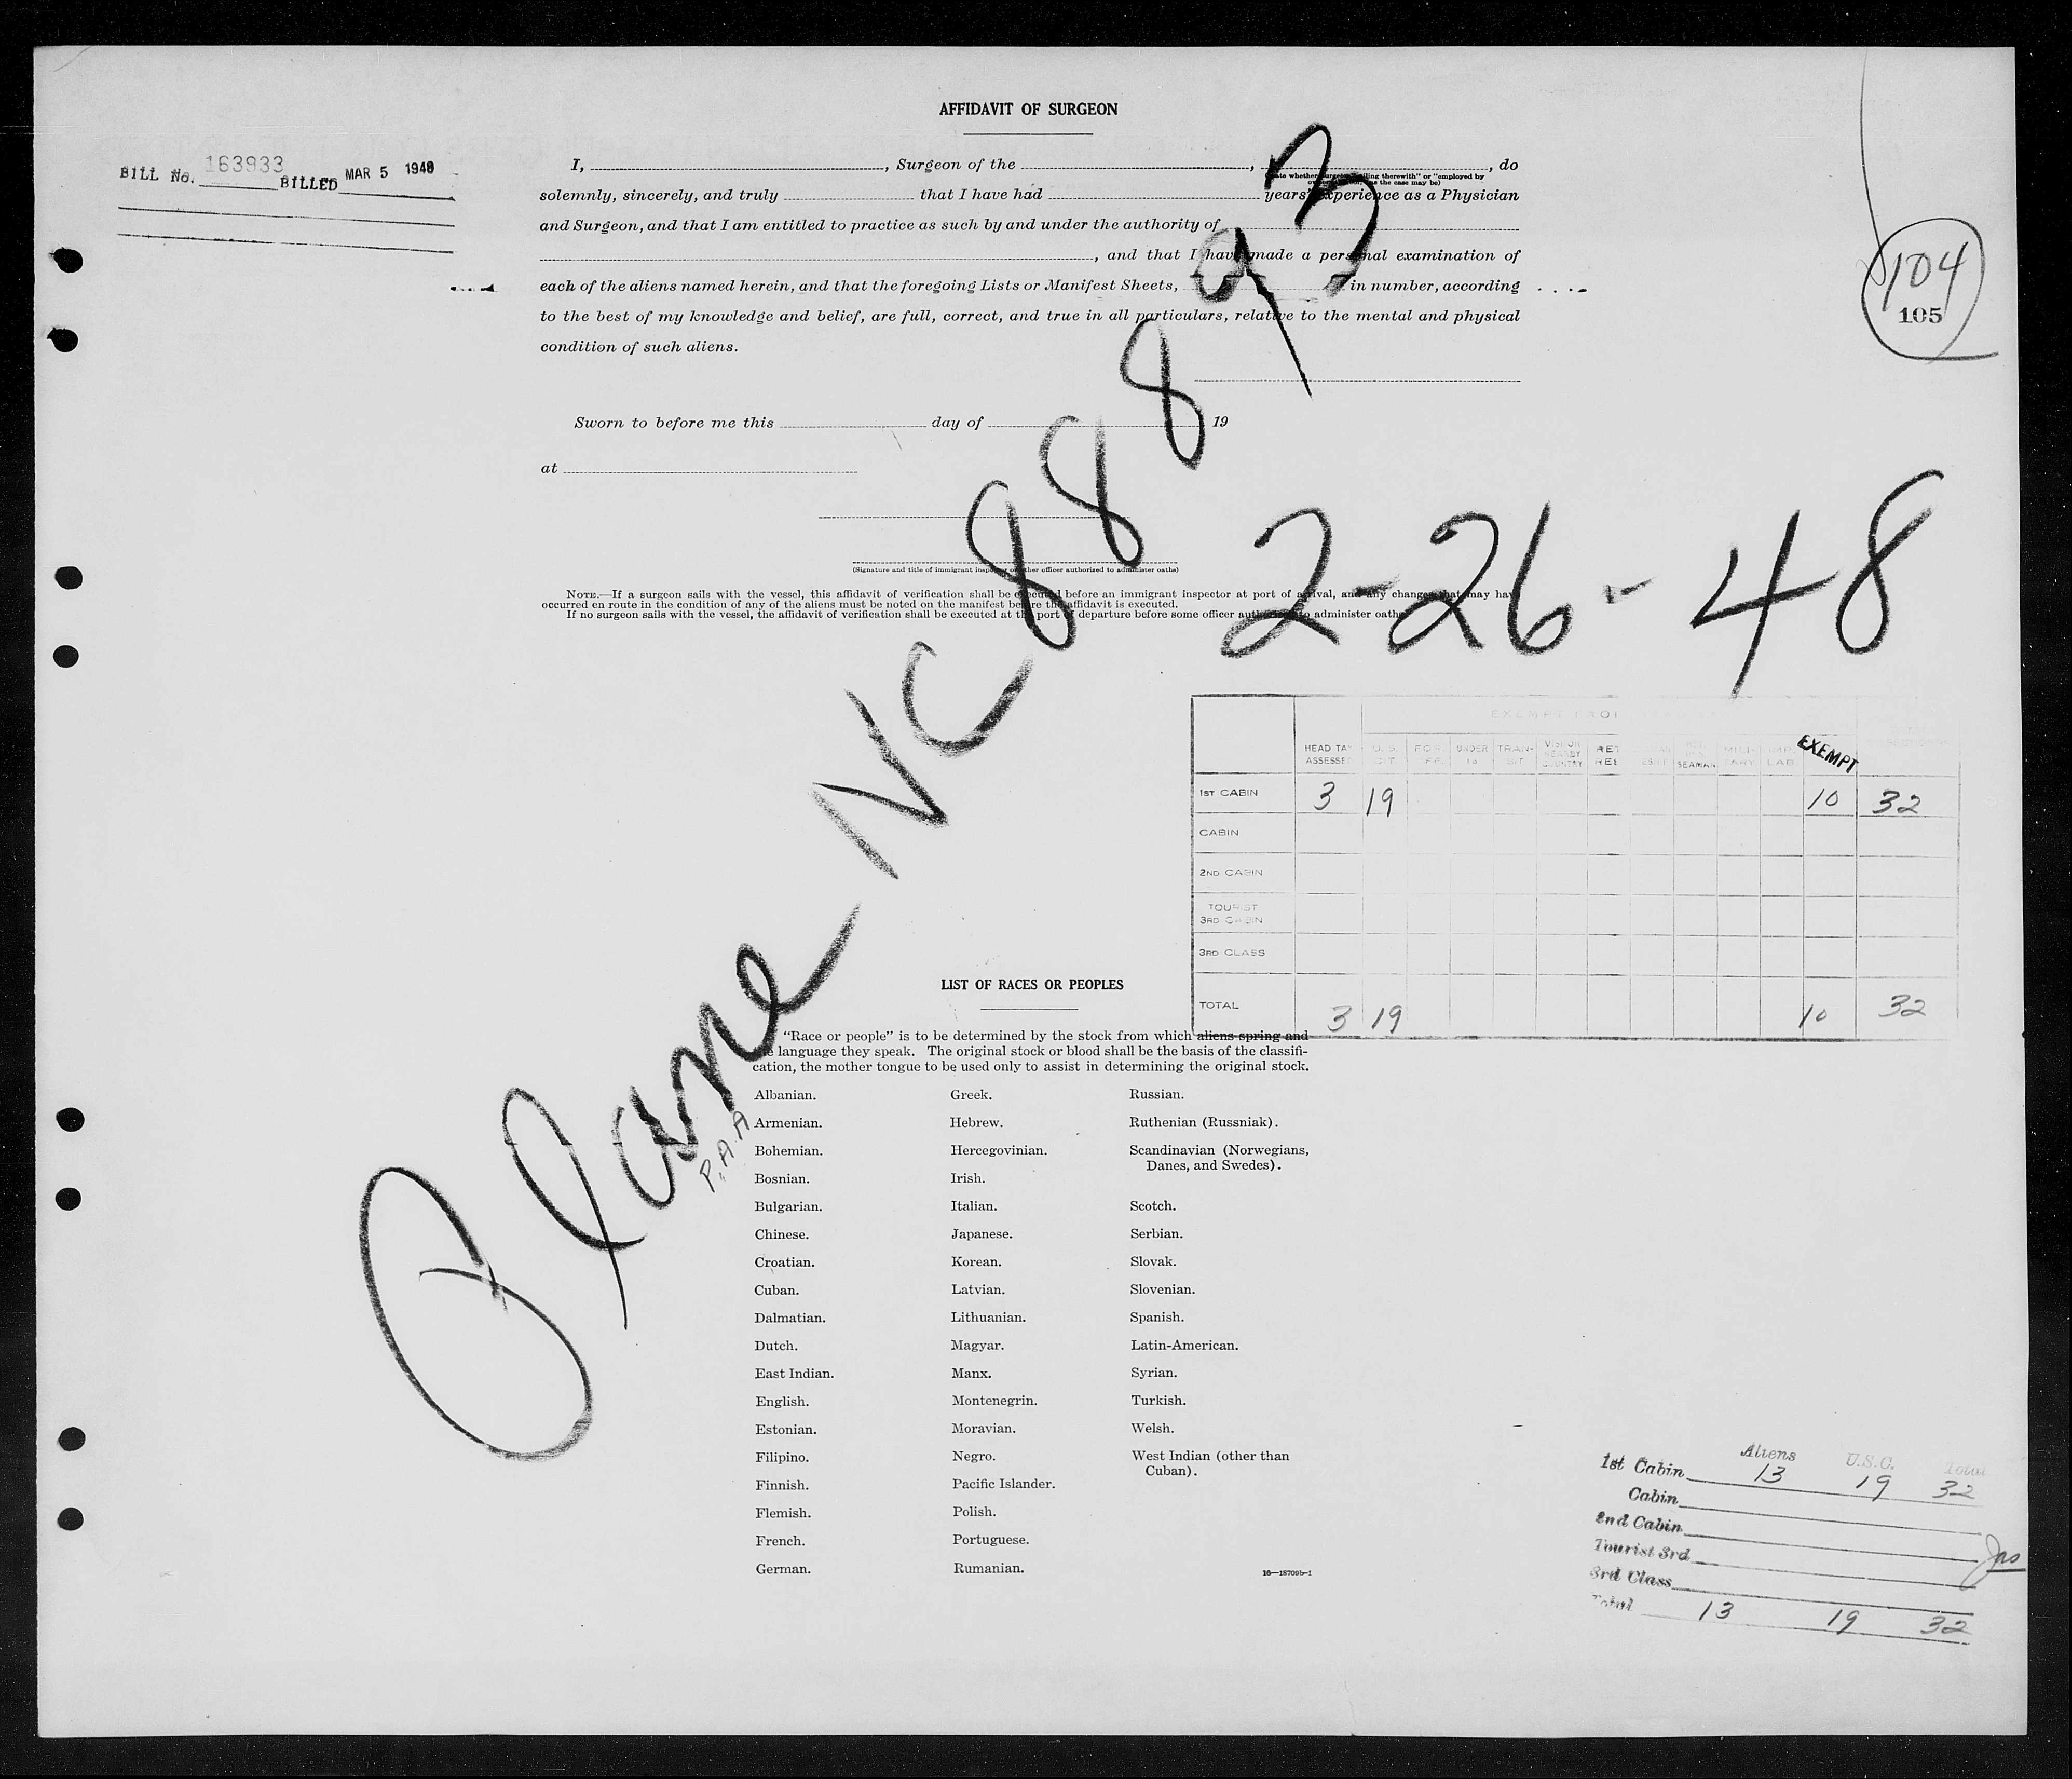 AFFIDAVIT OF SURGEON
BILL No. 163933 BILLED MAR 5 1948
I, , Surgeon of the , , do
solemnly, sincerely, and truly that I have had years' experience as a Physician
and Surgeon, and that I am entitled to practice as such by and under the authority of
, and that I have made a personal examination of
each of the aliens named herein, and that the foregoing Lists or Manifest Sheets, in number, according
to the best of my knowledge and belief, are full, correct, and true in all particulars, relative to the mental and physical
condition of such aliens.
104
105
Sworn to before me this day of 19
at
(Signature and title of immigrant inspector or other officer authorized to administer oaths)
NOTE.—If a surgeon sails with the vessel, this affidavit of verification shall be executed before an immigrant inspector at port of arrival, and any changes that may have
occurred en route in the condition of any of the aliens must be noted on the manifest before the affidavit is executed.
If no surgeon sails with the vessel, the affidavit of verification shall be executed at the port of departure before some officer authorized to administer oaths.
Plane NC 88893
P.A.A
2-26-48
HEAD TAX ASSESSED U.S. CIT. UNDER 16 TRAN-SIT VISITOR NEARBY COUNTRY SEAMAN MILI-TARY EXEMPT
1ST CABIN 3 19 10 32
CABIN
2ND CABIN
TOURIST
3RD CABIN
3RD CLASS
TOTAL 3 19 10 32
LIST OF RACES OR PEOPLES
"Race or people" is to be determined by the stock from which aliens spring and
the language they speak. The original stock or blood shall be the basis of the classifi-
cation, the mother tongue to be used only to assist in determining the original stock.
Albanian.
Armenian.
Bohemian.
Bosnian.
Bulgarian.
Chinese.
Croatian.
Cuban.
Dalmatian.
Dutch.
East Indian.
English.
Estonian.
Filipino.
Finnish.
Flemish.
French.
German.
Greek.
Hebrew.
Hercegovinian.
Irish.
Italian.
Japanese.
Korean.
Latvian.
Lithuanian.
Magyar.
Manx.
Montenegrin.
Moravian.
Negro.
Pacific Islander.
Polish.
Portuguese.
Rumanian.
Russian.
Ruthenian (Russniak).
Scandinavian (Norwegians,
Danes, and Swedes).
Scotch.
Serbian.
Slovak.
Slovenian.
Spanish.
Latin-American.
Syrian.
Turkish.
Welsh.
West Indian (other than
Cuban).
16—18709b-1
Aliens U.S.C. Total
1st Cabin 13 19 32
Cabin
2nd Cabin
Tourist 3rd
3rd Class
Total 13 19 32